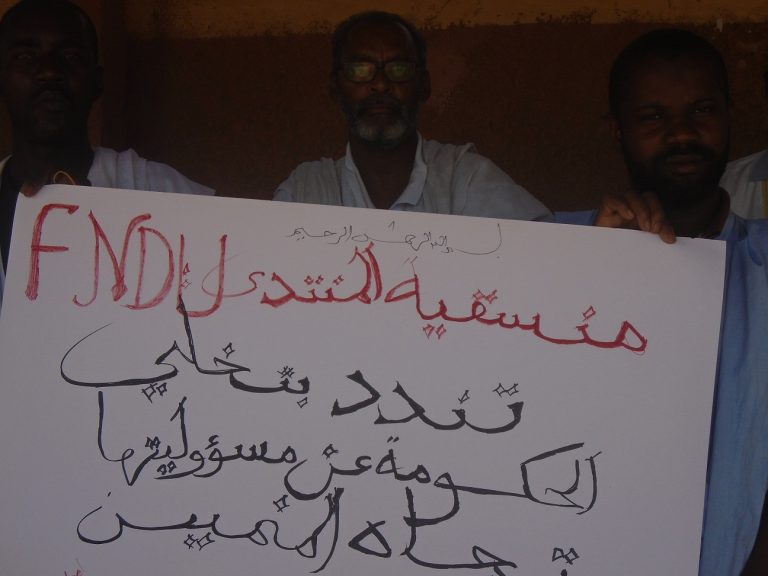 بسم الله الرحمن الرحيم
منسقية المنتدى FNDU
تندد بتخلي
الحكومة عن مسؤوليتها
تجاه المنمين